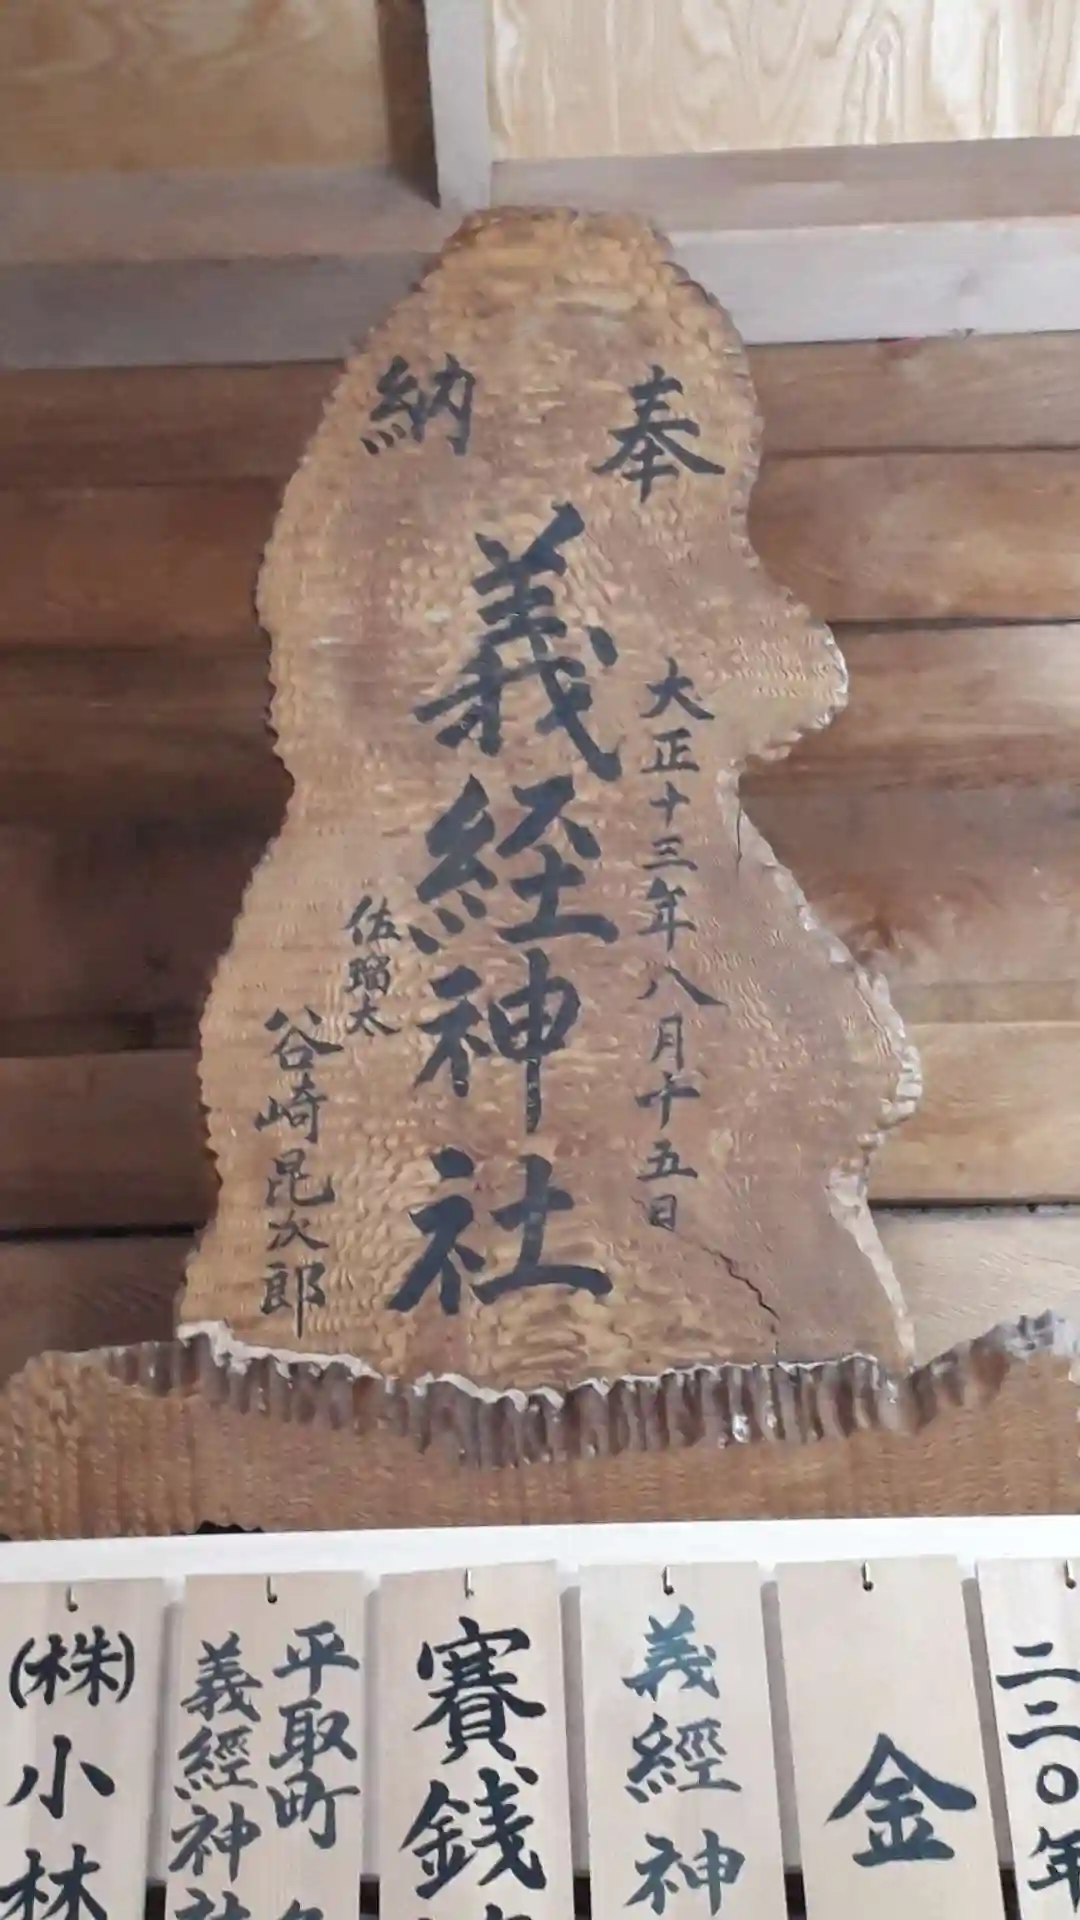 奉納
大正十三年八月十五日
義経神社
佐瑠太
谷崎昆次郎
二二〇年
金
義經神
賽銭
平取町
義經神社
(株)小林